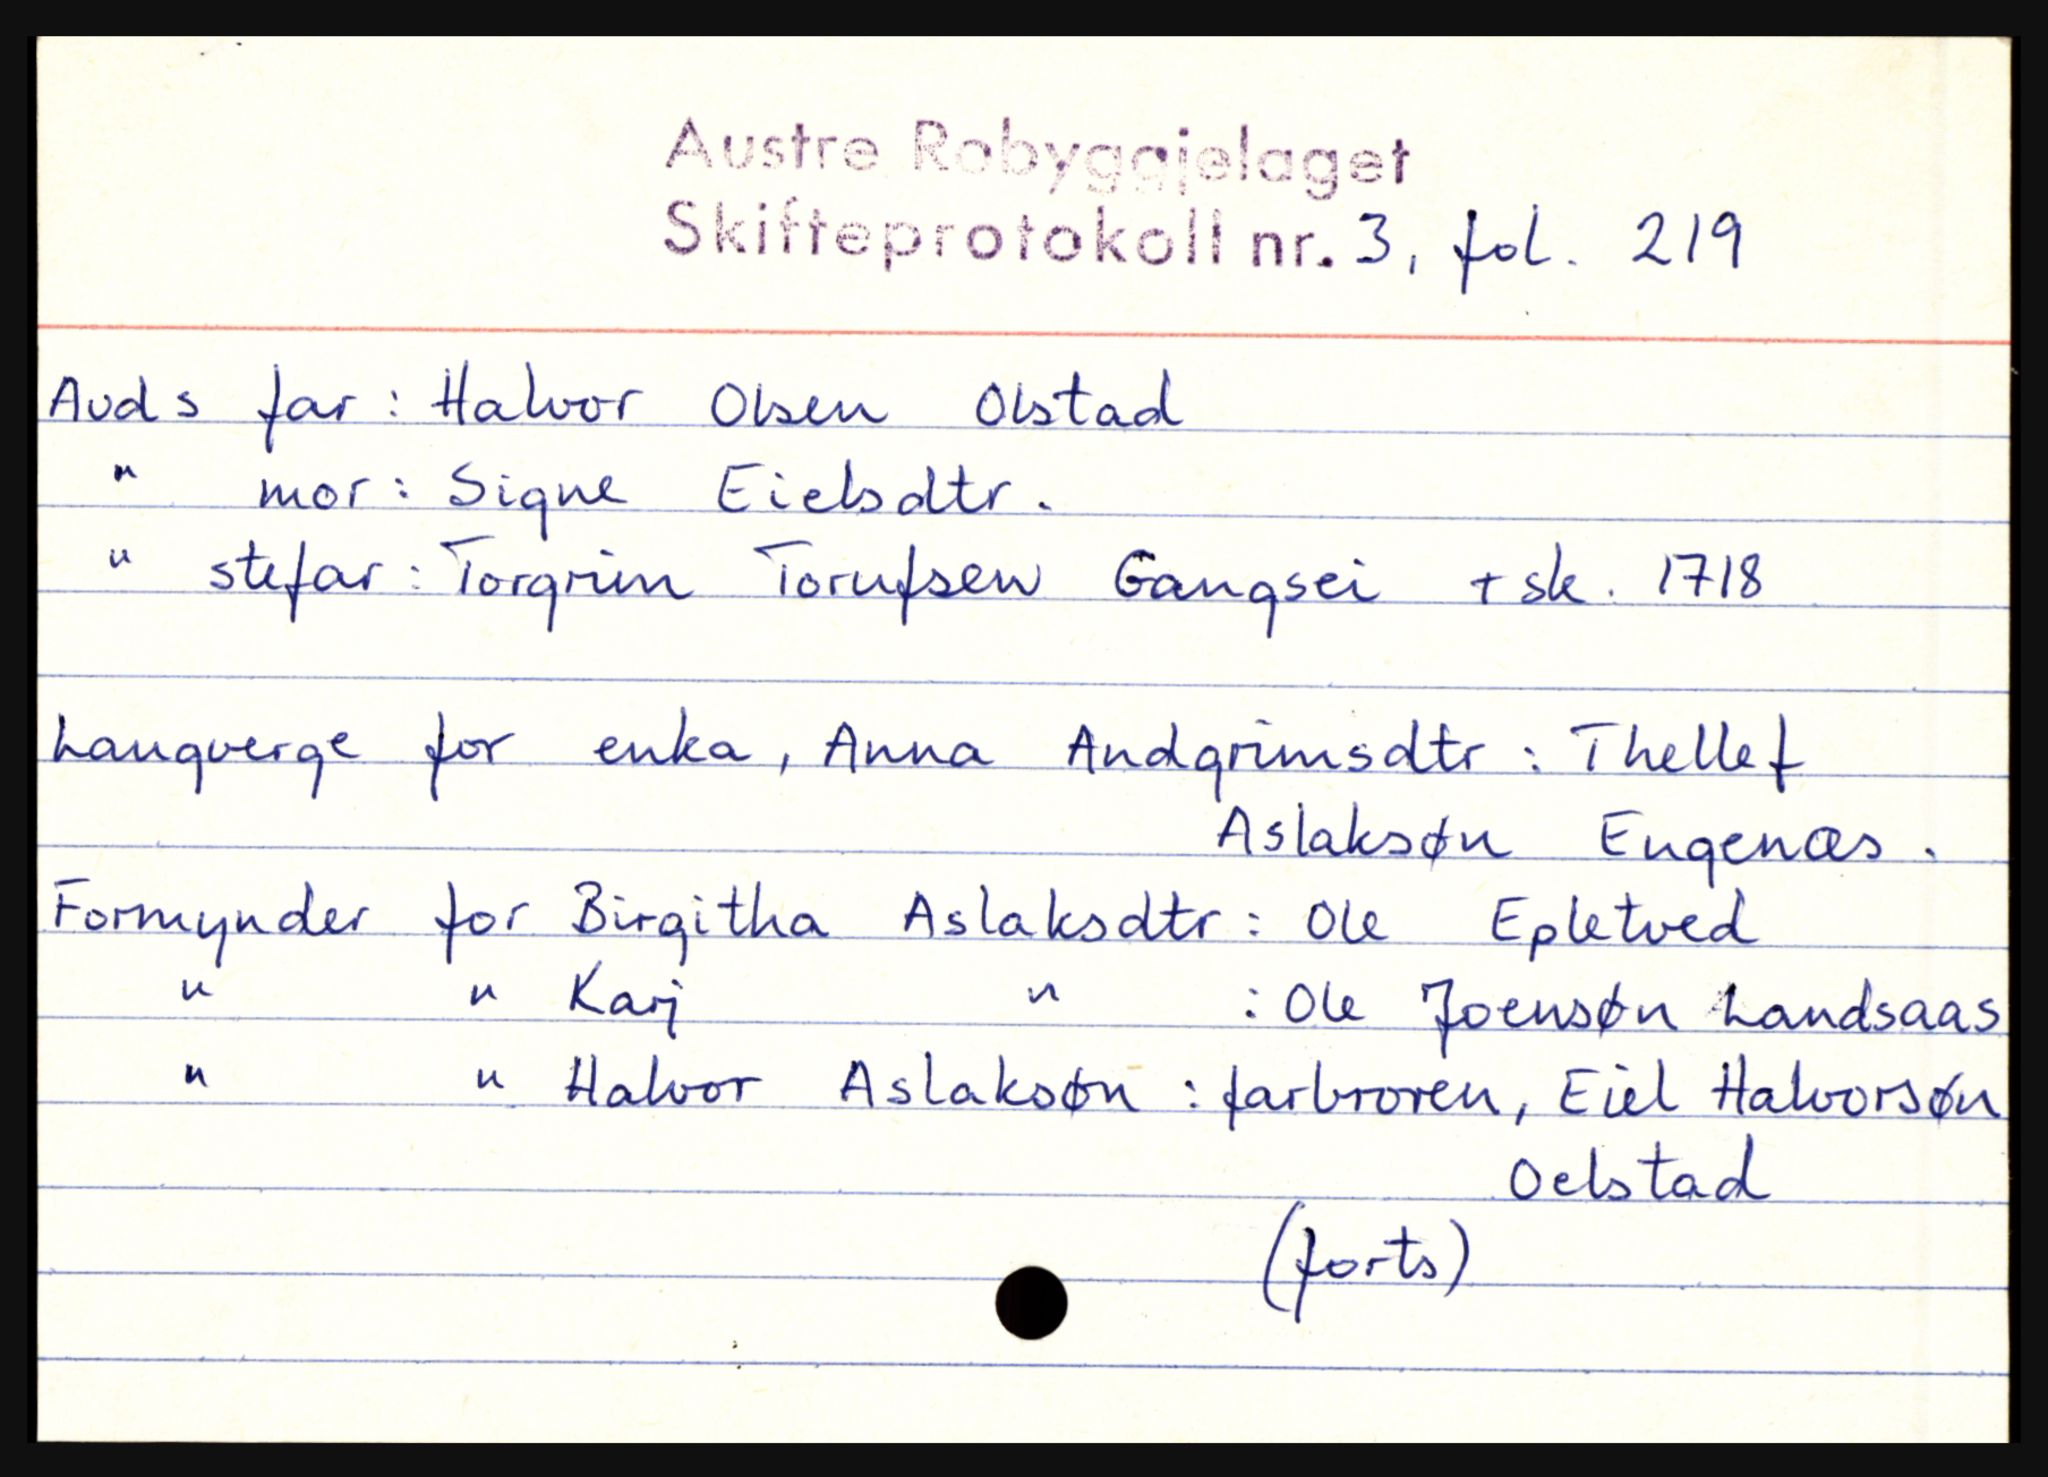 Austre Robyggjelaget
Skifteprotokoll nr. 3, fol. 219
Avds far: Halvor Olsen Olstad
" mor: Signe Eielsdtr.
" stefar: Torgrim Torufsen Gangsei + sk. 1718
Laugverge for enka, Anna Andgrimsdtr: Thellef
Aslaksøn Eugenæs.
Formynder for Birgitha Aslaksdtr: Ole Epletved
" " Karj " : Ole Joensøn Landsaas
" " Halvor Aslaksøn: farbroren, Eiel Halvorsøn
Oelstad
(forts)